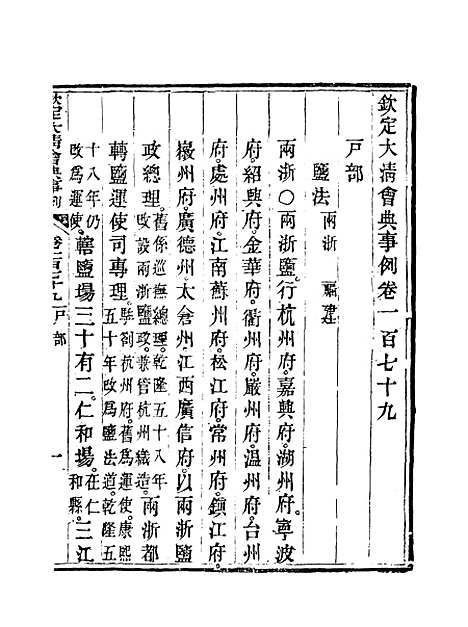 欽定大清會典事例卷一百七十九
戶部
鹽法 兩浙 福建
兩浙〇兩浙鹽行杭州府嘉興府湖州府寧波
府紹興府金華府衢州府嚴州府溫州府台州
府處州府江南蘇州府松江府常州府鎮江府
徽州府廣德州太倉州江西廣信府以兩浙鹽
政總理舊係巡撫總理乾隆五十八年
改設兩浙鹽政兼管杭州織造兩浙都
轉鹽運使司專理駐劄杭州府舊為運使康熙
五十年改為鹽法道乾隆五
十八年仍
改為運使轄鹽場三十有二仁和場在仁
和縣三江
欽定大清會典事例 卷一百七十九 戶部 一